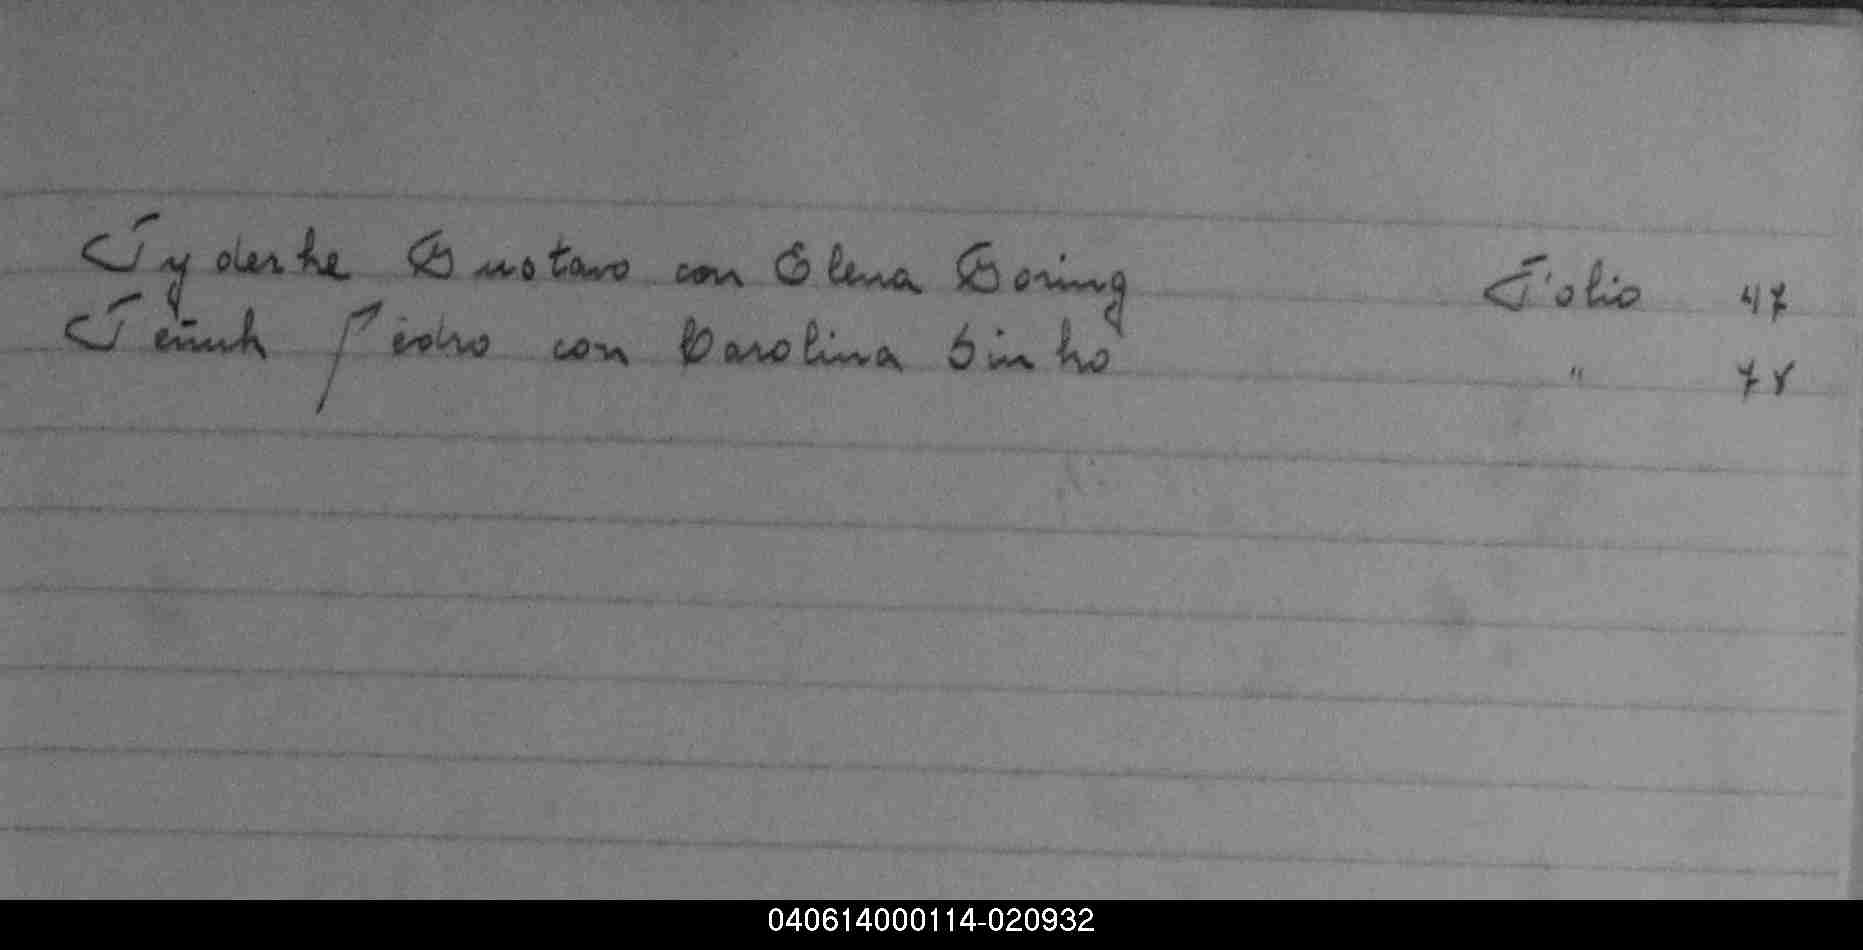 Tyderke Gustavo con Elena Goring Folio 47
Pedro con Carolina Sinko " 78
040614000114-020932